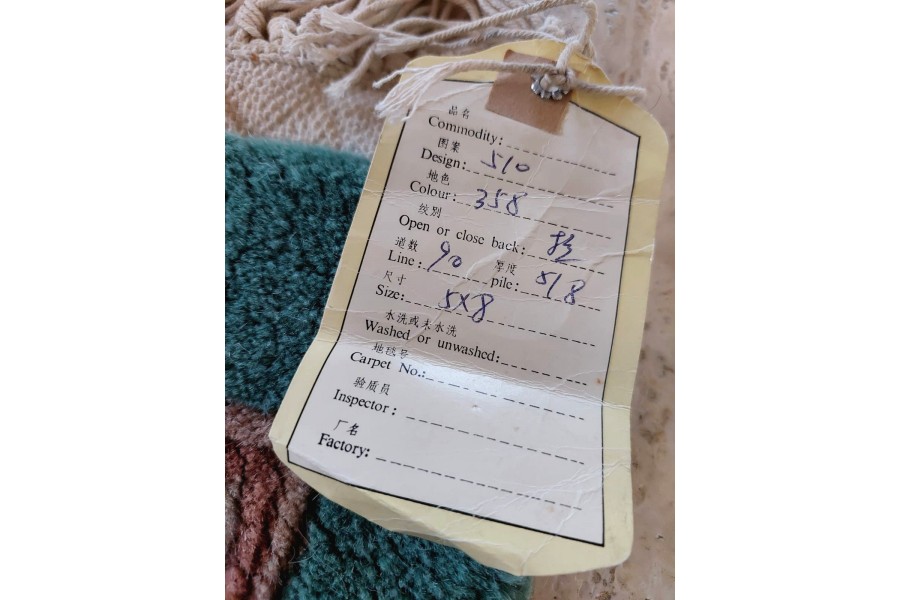 品名
Commodity:
图案
Design: 510
地色
Colour: 358
纹别
Open or close back:
道数 厚度
Line: 90 pile: 5/8
尺寸
Size: 5X8
水洗或未水洗
Washed or unwashed:
地毯号
Carpet No.:
验质员
Inspector:
厂名
Factory: